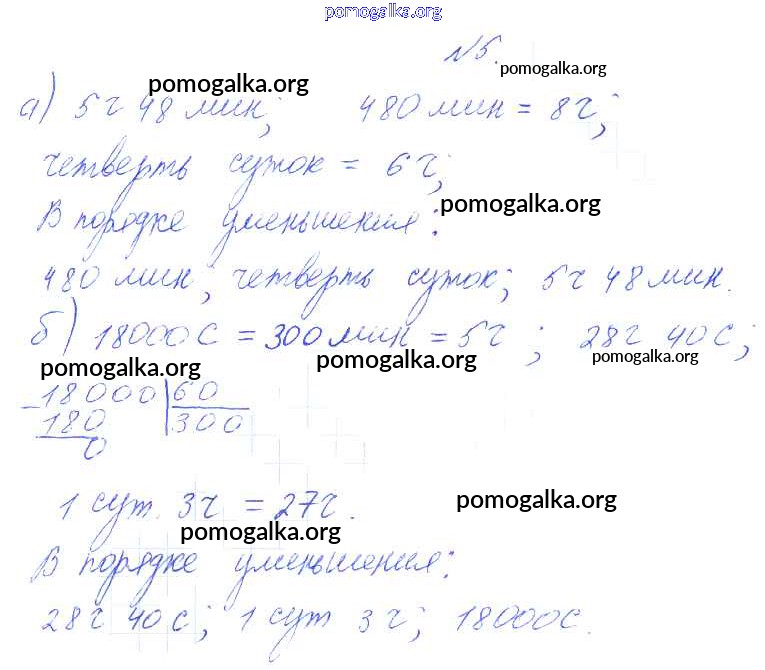 pomogalka.org
№5. pomogalka.org
pomogalka.org
а) 5ч 48 мин; 480 мин = 8ч;
четверть суток = 6ч;
В порядке уменьшения: pomogalka.org
480 мин; четверть суток; 5ч 48 мин.
б) 18000с = 300 мин = 5ч; 28ч 40с;
pomogalka.org pomogalka.org pomogalka.org
18000 60
180 300
0
1 сут. 3ч = 27ч. pomogalka.org
pomogalka.org
В порядке уменьшения:
28ч 40с; 1 сут 3ч; 18000с.